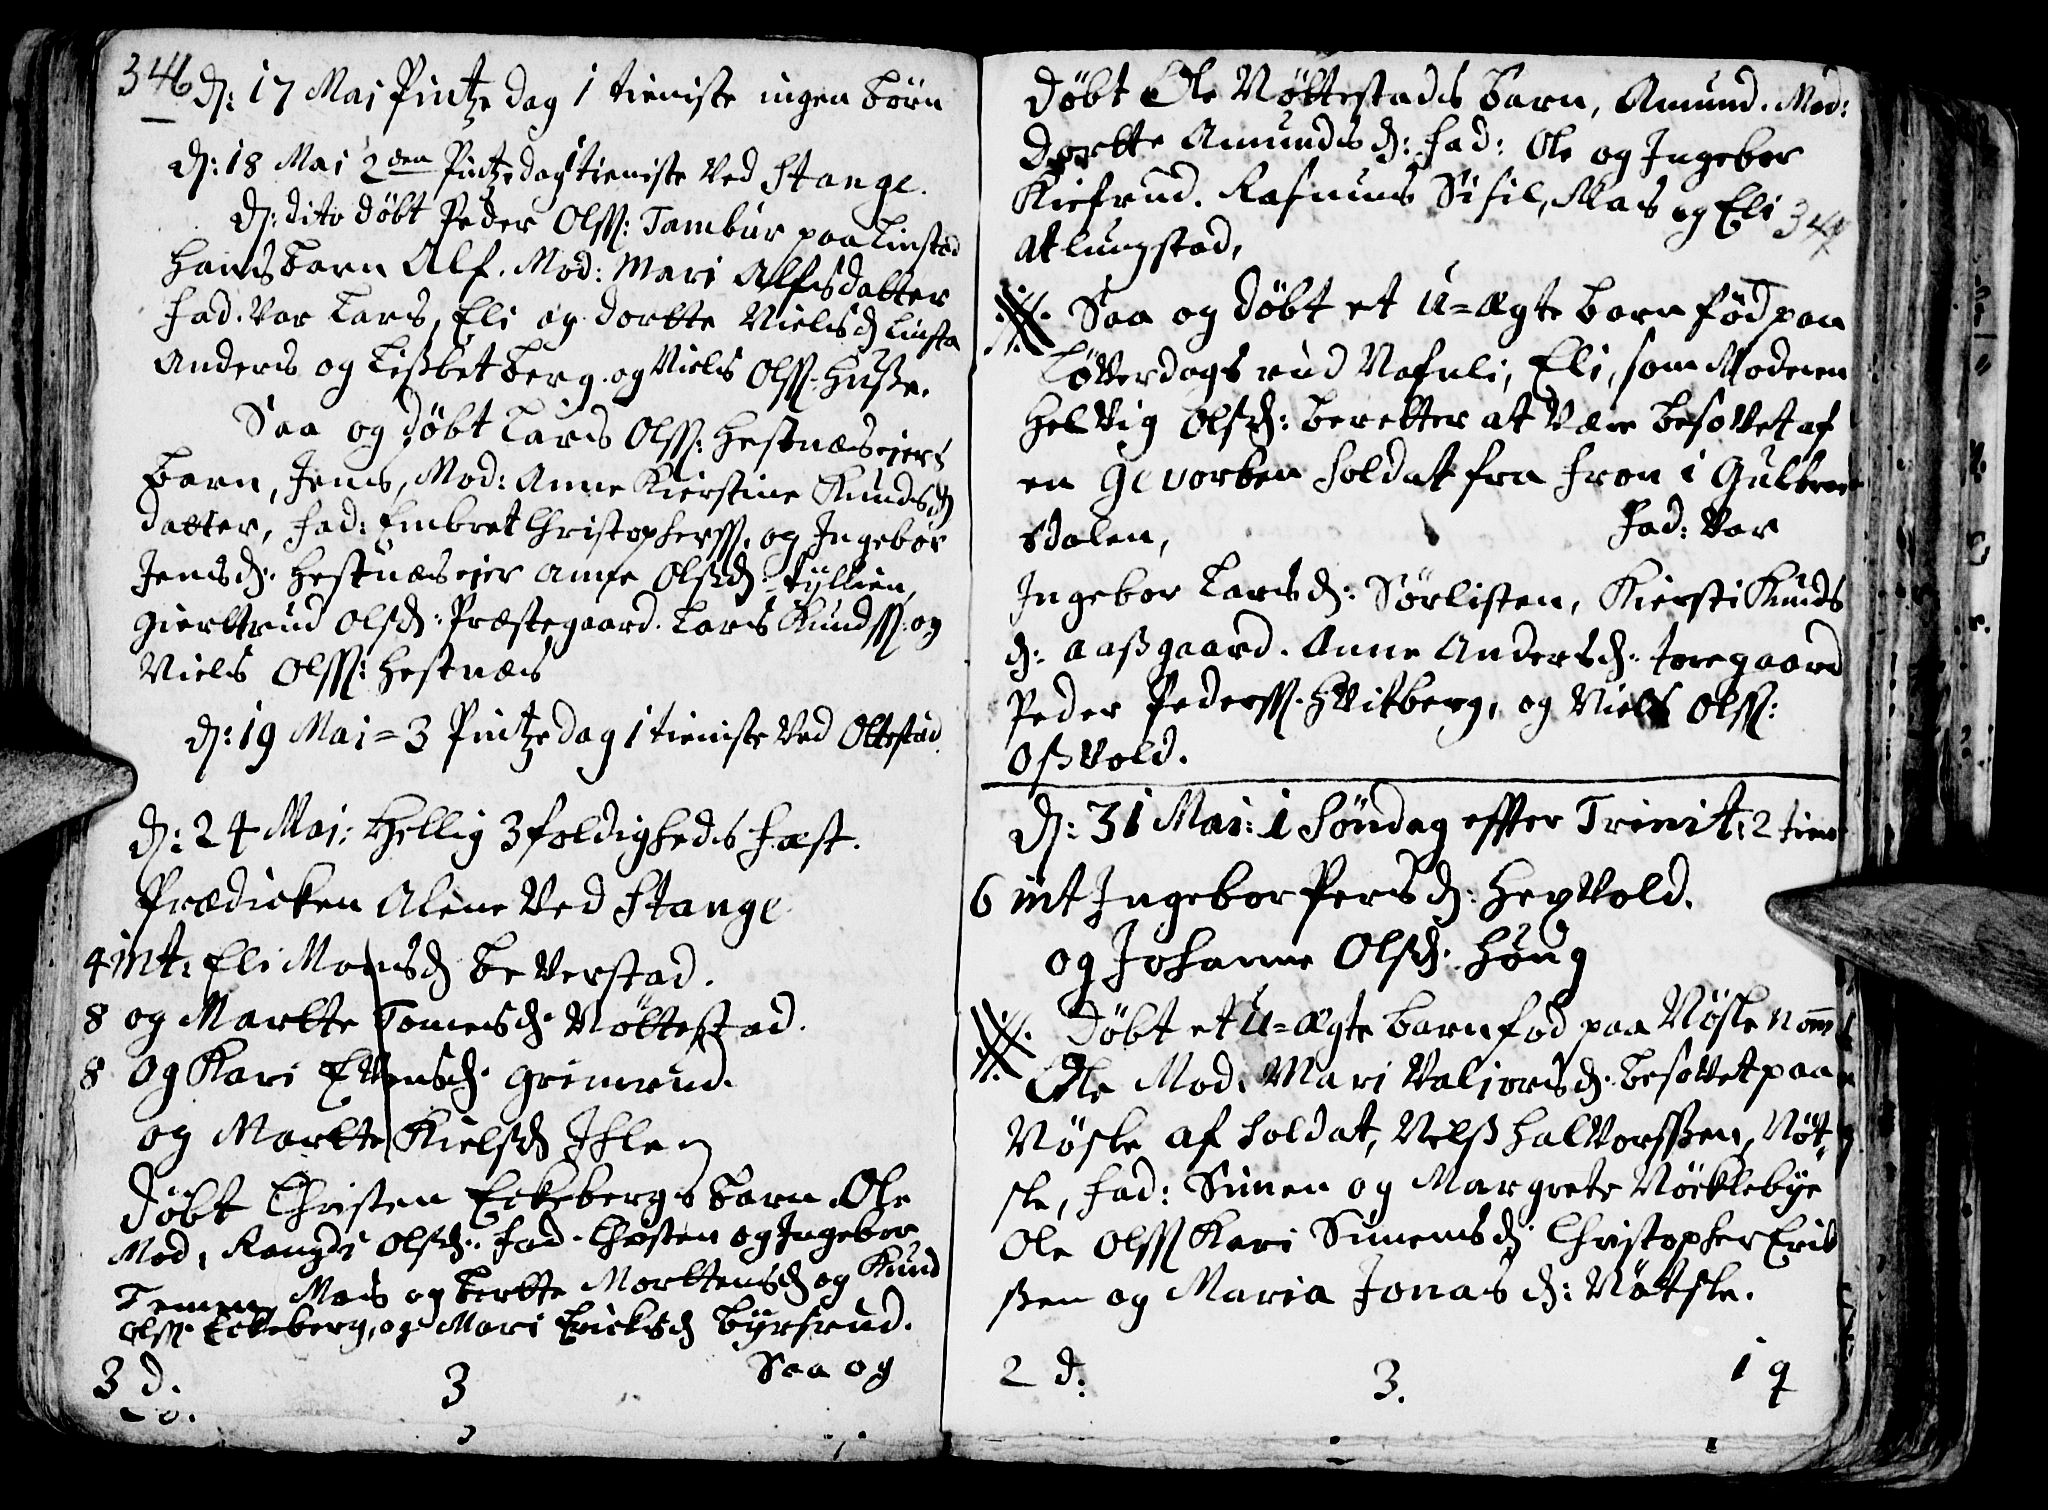 346
d: 17 Maj Pintze dag 1 tieniste ingen börn
d: 18 Mai 2den Pintzedag 1 tieniste Ved Stange.
d: dito döbt Peder Olss: Tambur paa Linstad
hans barn Alf. Mod: Mari Alfsdatter
fad. var Lars, Eli og dortte Nielsd Linsta
Anders og Lissbet berg. og Niels Olss. Husse.
Saa og döbt Lars Olss: Hestnæs ejers
barn, Jens, Mod: Anne Kierstine Knudsd
datter, fad: Embret Christopherss. og Ingebor
Jensd: Hestnæs eier Anne Olsd: Tyllien,
Giertrud Olsd: Præstegaard. Lars Knudss: og
Niels Olss: Hestnæs
d: 19 Mai = 3 Pintze dag 1 tieniste Ved Ottestad.
d: 24 Maj: Hellig 3foldigheds fæst.
Prædicken Alene Ved Stange
4 int: Eli Monsd Beverstad.
8 og Martte Tomesd. Nöttestad.
8 og Kari Evensd. Grimerud.
og Martte Kielsd Ihle
Döbt Christen Eckebergs barn Ole
Mod, Rangdi Olsd: fad. Christen og Ingebor
Temmen, Mas og bertte Morttensd og Knud
Olss. Eckeberg, og Mari Ericksd Byrsrud.
Saa og
3 d. 3
döbt Ole Nöttestads barn, Amund. Mod:
Dortte Amundsd: fad: Ole og Ingebor
Kiefrud. Rasmus Sisil, Mas og Eli
347
Atlungstad,
Saa og döbt et U=ægte barn föd paa
Löverdags rud Nafnli, Eli, som Moderen
Helvig Olsd: beretter at være besovet af
en gevorben soldat fra fron i Gulbrand
sdalen, fad: var
Ingebor Larsd: Sörlisten, Kiersti Knuds
d: aassgaard. Anne Andersd: Joregaard
Peder Pederss. Hvitberg, og Niels Olss:
Ossvold.
d: 31 Mai: 1 Söndag effter Trinit: 2 tien
6 int Ingebor Persd: Hexvold.
og Johanne Olsd: Höug
Döbt et U=ægte barn föd paa Nöske nom
Ole Mod: Mari Valjorsd: besovet paa
Nöske af soldat, Nelss Halvorssen, Nöt-
ske, fad: Simen og Margrete Nöcklebye
Ole Olss Kari Simensd: Christopher Erik
ssen og Maria Jonas d: Nötske.
2 d: 3. 1 q